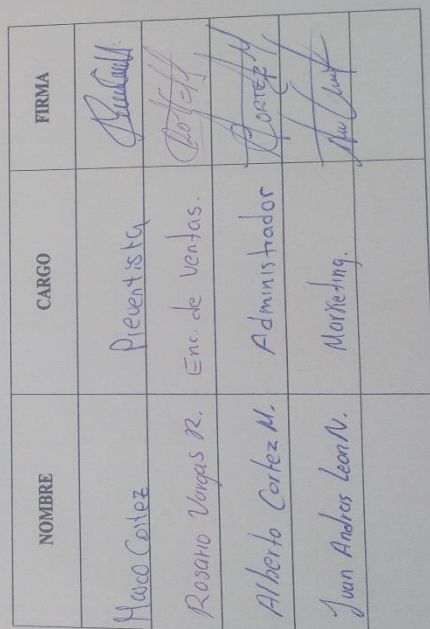 NOMBRE CARGO FIRMA
Marco Cortez Preventista
Rosario Vargas R. Enc. de Ventas.
Alberto Cortez M. Administrador CORTEZ M
Juan Andres Leon N. Marketing.